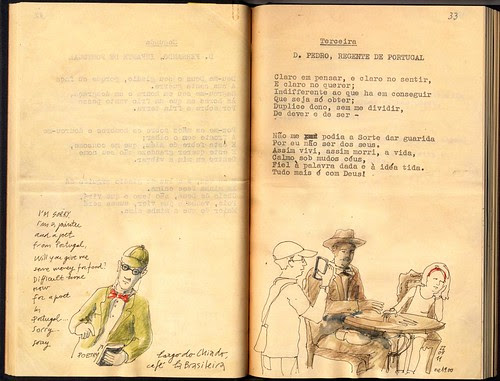 I'm sorry.
I'm a painter
and a poet
from Portugal,
Will you give me
some money for food?
Difficult time
now
for a poet
in
Portugal...
Sorry...
sorry
POETRY
Largo do Chiado,
café "A Brasileira"
33
Terceira
D. PEDRO, REGENTE DE PORTUGAL
Claro em pensar, e claro no sentir,
E claro no querer;
Indifferente ao que ha em conseguir
Que seja só obter;
Duplice dono, sem me dividir,
De dever e de ser -
Não me podia a Sorte dar guarida
Por eu não ser dos seus.
Assim vivi, assim morri, a vida,
Calmo sob mudos céus,
Fiel à palavra dada e à idéa tida.
Tudo mais é com Deus!